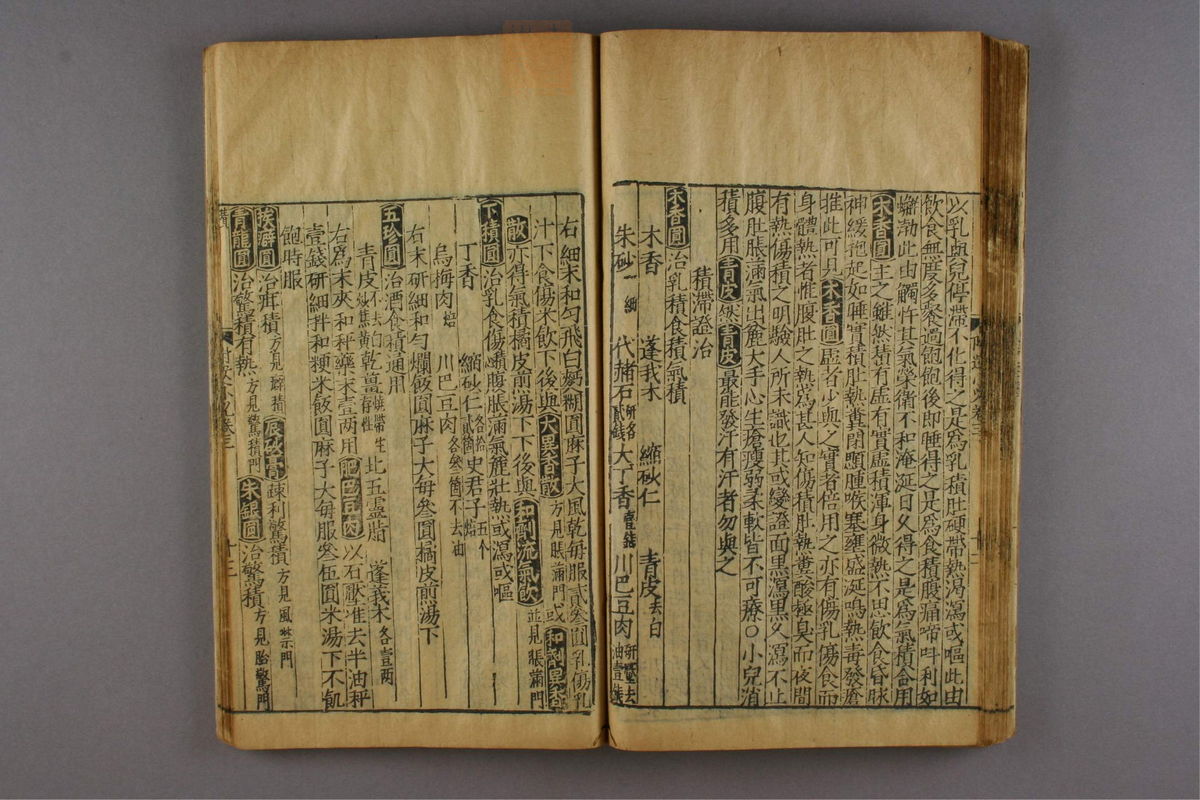 以乳與兒停滯不化得之是爲乳積肚硬帶熱渴瀉或嘔此由
飲食無度多餐過飽飽後即睡得之是爲食積腹痛啼叫利如
蟛渤此由觸忤其氣榮衛不和淹涎日久得之是爲氣積合用
木香圓主之雖然積有虛有實虛積渾身微熱不思飲食昏昧
神緩抱起如睡實積肚熱糞閉顋腫喉塞壅盛涎鳴熱毒發瘡
推此可見木香圓虛者少與之實者倍用之亦有傷乳傷食而
身體熱者惟腹肚之熱爲甚人知傷積肚熱糞酸極臭而夜間
有熱傷積之明驗人所未識也其或變證面黑瀉黑久瀉不止
腹肚脹滿氣出麄大手心生瘡瘦弱柔軟皆不可療○小兒消
積多用青皮然青皮最能發汗有汗者勿與之
積滯證治
木香圓治乳積食積氣積
木香 蓬我朮 縮砂仁 青皮去白
朱砂細 代赭石 大丁香 川巴豆肉
右細末和勻飛白麪糊圓麻子大風乾每服貳叁圓乳傷乳
汁下食傷米飲下後與大異香散方見脹滿門或和劑異香
散亦得氣積橘皮煎湯下下後與和劑流氣飲並見脹滿門
下積圓治乳食傷積腹脹滿氣麄壯熱或瀉或嘔
丁香 縮砂仁 史君子五个
烏梅肉焙 川巴豆肉各叁箇不去油
右末研細和勻爛飯圓麻子大每叁圓橘皮煎湯下
五珍圓治酒食積通用
青皮不去白炒焦黃乾薑 五靈脂 蓬莪朮各壹兩
右爲末夾和秤藥末壹兩用肥巴豆肉以石壓堆去半油秤
壹錢研細拌和粳米飯圓麻子大每服叁伍圓米湯下不飢
飽時服
挨癖圓治疳積方見癖積辰砂膏疎利驚積方見風禁門
青龍圓治驚積有熱方見驚積門朱銀圓治驚積方見胎驚門